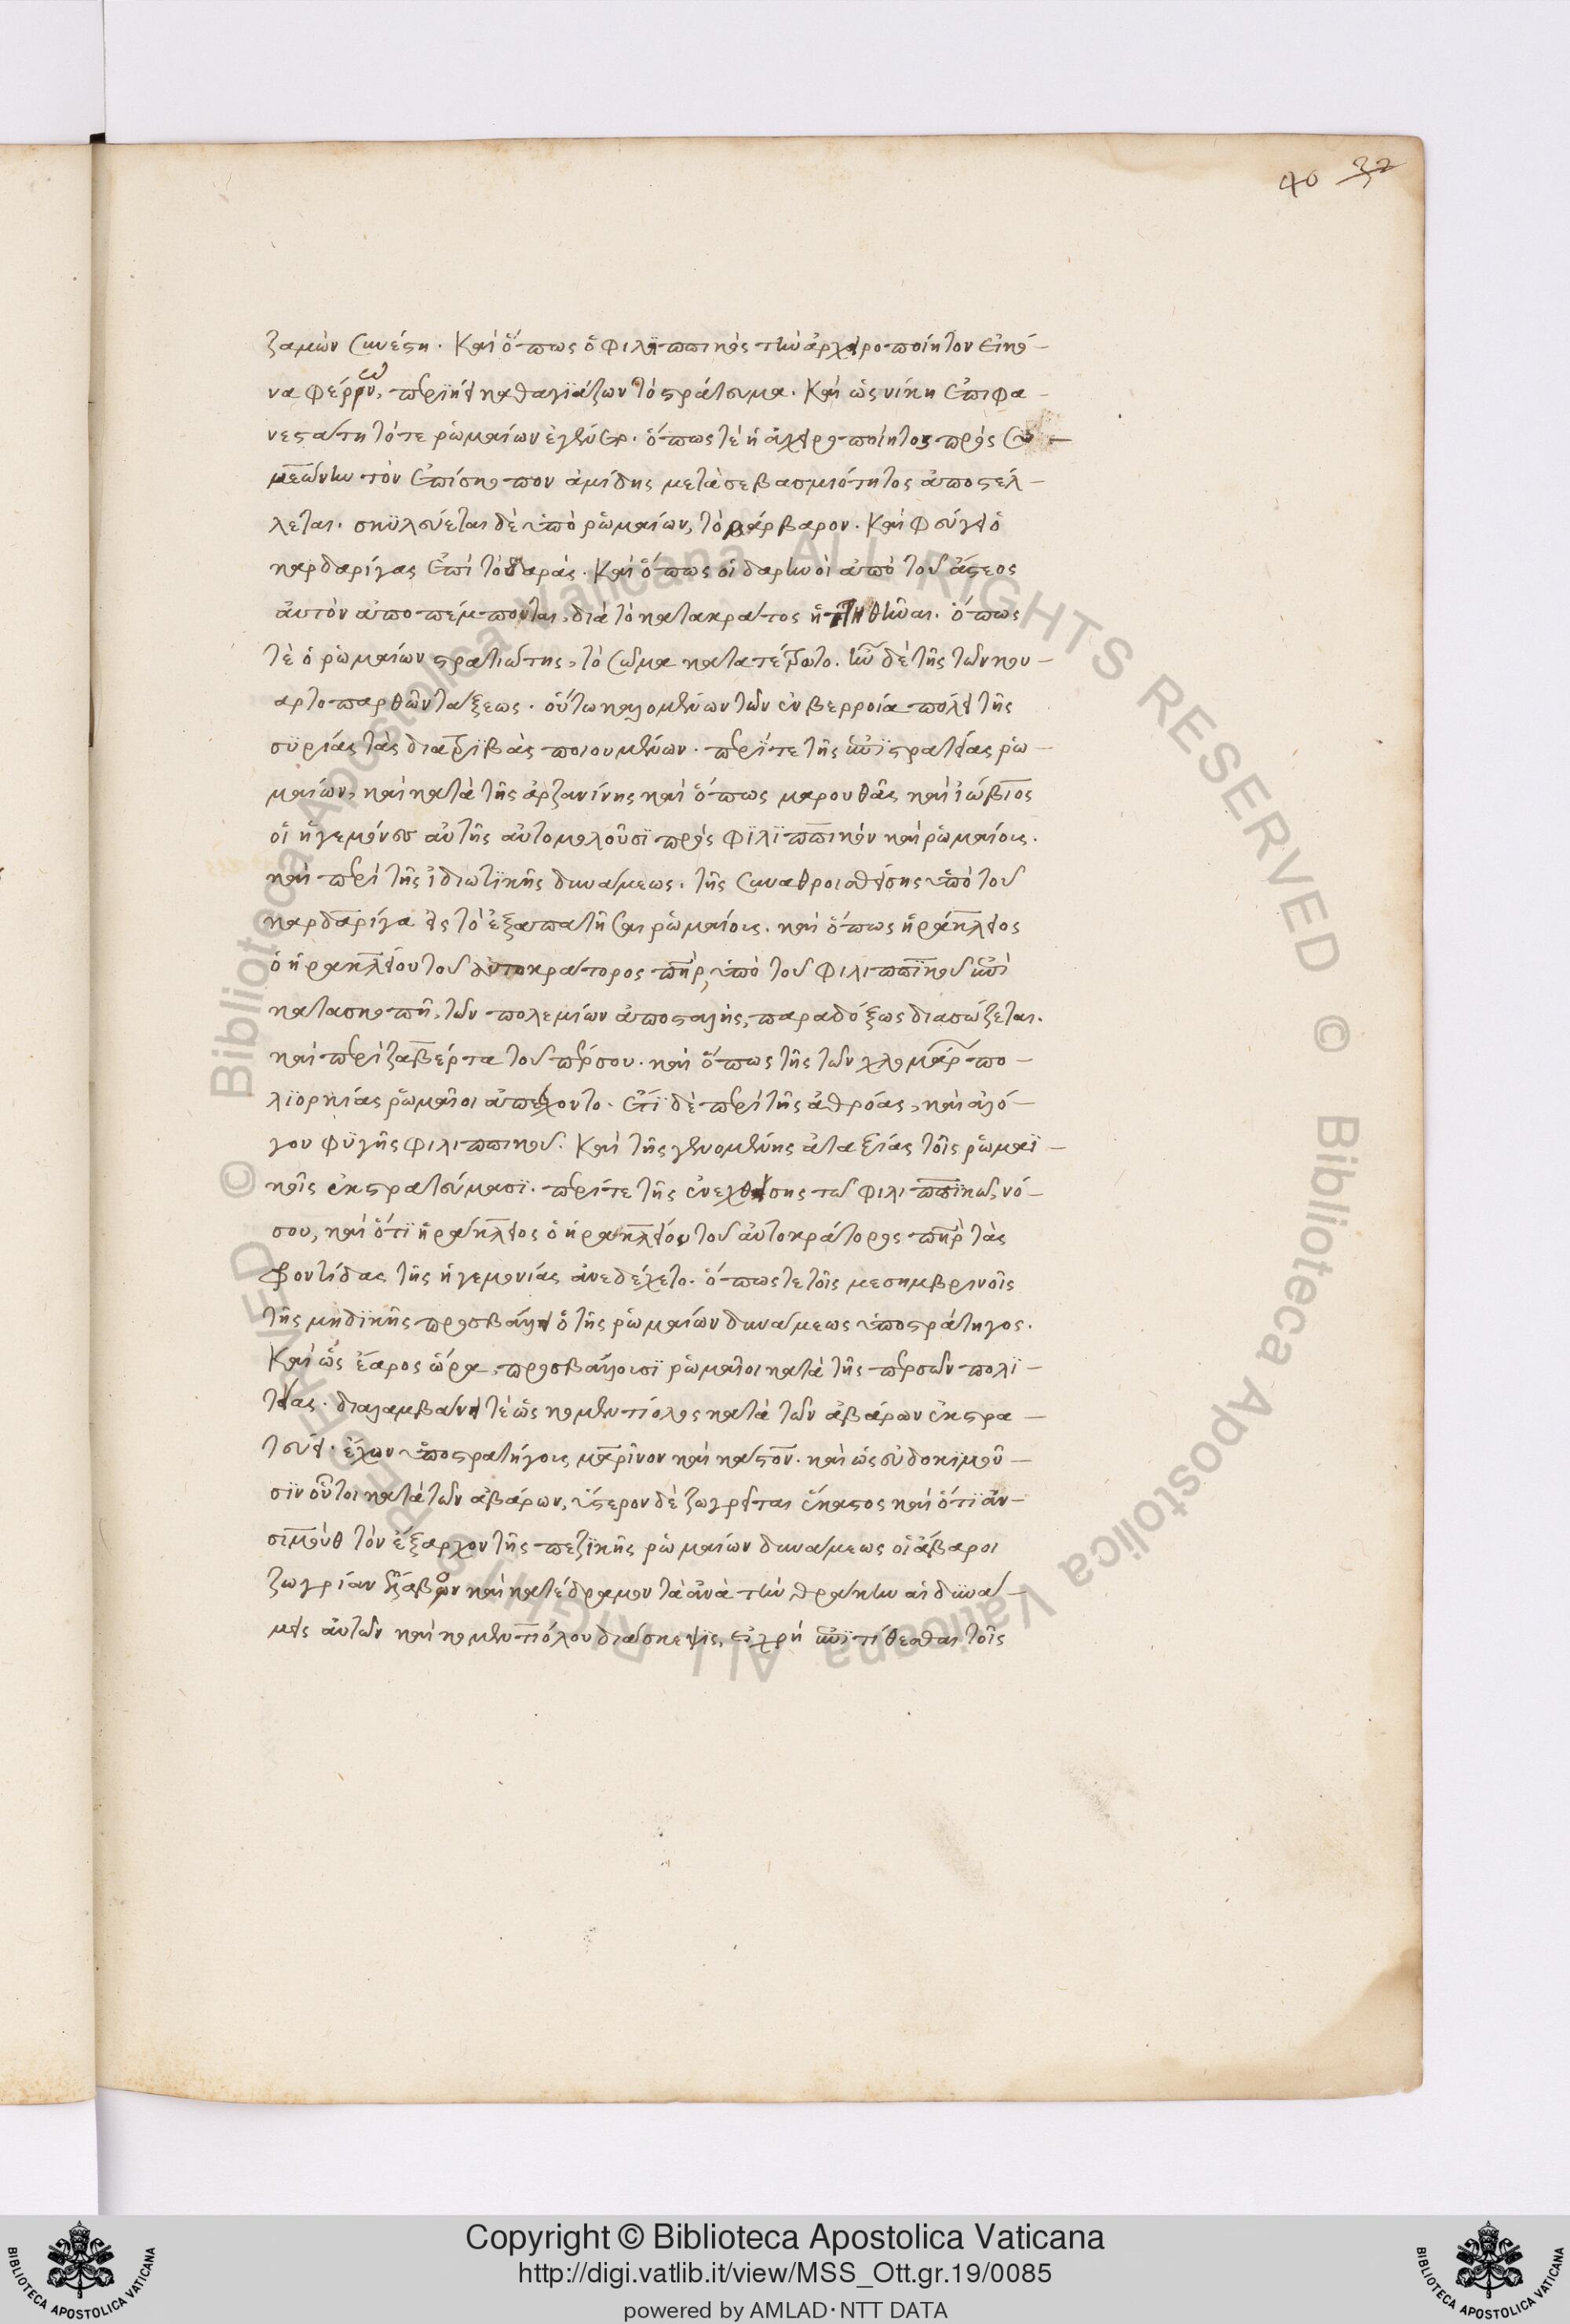 40 37
ζαμὼν συνέστη. Καὶ ὅπως ὁ φιλιππικὸς τὴν ἀρχειροποίητον εἰκό-
να φέρρων, περιῄει καθαγιάζων τὸ στράτευμα. Καὶ ὡς νίκη ἐπιφα-
νεστάτη τότε ῥωμαίων ἐγένετο. ὅπως τὲ ἡ ἀχειροποίητος πρὸς συ-
μεώνην τὸν ἐπίσκοπον ἀμίδης μετὰ σεβασμιότητος ἀποστέλ-
λεται. σκϋλεύεται δὲ ὑπὸ ῥωμαίων, τὸ βάρβαρον. Καὶ φεύγει ὁ
καρδαρίγας ἐπὶ τὸ δαράς. Καὶ ὅπως οἱ δαρηνοὶ ἀπὸ τοῦ ἄστεος
ἀυτὸν ἀποπέμπονται, διὰ τὸ κατακρατος ἡττηθῆναι. ὅπως
τὲ ὁ ῥωμαίων στρατιώτης, τὸ σῶμα κατατέτρωτο. ἦν δὲ τῆς τῶν κου-
αρτοπαρθῶν τάξεως. οὕτω καλομένων τῶν ἐν βερροία πόλει τῆς
συρίας τὰς διατριβὰς ποιουμένων. περί τε τῆς ἐπιστρατείας ῥω-
μαίων, καὶ κατὰ τῆς ἀρζανίνης καὶ ὅπως μαρουθᾶς καὶ ἰώβιος
οἱ ἡγεμόνες αὐτῆς αὐτομολοῦσι πρὸς φιλιππικὸν καὶ ῥωμαίοις.
καὶ περὶ τῆς ἰδιωτικῆς δυνάμεως. τῆς συναθροισθείσης ὑπὸ τοῦ
καρδαρίγα εἰς τὸ ἐξαπατῆσαι ῥωμαίοις. καὶ ὅπως ἡράκλειος
ὁ ἡρακλείου τοῦ αὐτοκράτορος πατὴρ, ὑπὸ τοῦ φιλιππικοῦ ἐπὶ
κατασκοπῇ, τῶν πολεμίων ἀποσταλὴς, παραδόξως διασώζεται.
καὶ περὶ ζαβέρτα τοῦ πέρσου. καὶ ὅπως τῆς τῶν χλομάρων πο-
λιορκίας ῥωμαῖοι ἀπείχοντο. ἔτι δὲ περὶ τῆς ἀθρόας, καὶ ἀλό-
γου φυγῆς φιλιππικοῦ. Καὶ τῆς γενομένης ἀταξίας τοῖς ῥωμαϊ-
κοῖς ἐκστρατεύμασι. περί τε τῆς ἐνελθείσης τῶ φιλιππικῶ νό-
σου, καὶ ὅτι ἡράκλειος ὁ ἡρακλείου τοῦ αὐτοκράτορος πατὴρ τὰς
φροντίδας τῆς ἡγεμονίας ἀνεδέχετο. ὅπως τε τοῖς μεσημβρινοῖς
τῆς μηδικῆς προσβάλλει ὁ τῆς ῥωμαίων δυνάμεως ὑποστράτηγος.
Καὶ ὡς ἔαρος ὥρα, προσβάλλουσι ῥωμαῖοι κατὰ τῆς περσῶν πολι-
τείας. διαλαμβάνει τὲ ὡς κομεντίολος κατὰ τῶν ἀβάρων ἐκστρα-
τεύει. ἔχων ὑποστρατήγοις μαρτῖνον καὶ κάστον. καὶ ὡς εὐδοκιμοῦ-
σιν οὗτοι κατὰ τῶν ἀβάρων, ὕστερον δὲ ζωγρεῖται ὁ κάστος καὶ ὅτι ἀν-
σιμοὺθ τὸν ἔξαρχον τῆς πεζικῆς ῥωμαίων δυνάμεως οἱ ἄβαροι
ζωγρίαν ἔλαβον καὶ κατέδραμον τὰ ἀνὰ τὴν θράκην αἱ δυνά-
μεις ἀυτῶν καὶ κομεντιόλου διάσκεψις, εἰ χρὴ ἐπιτίθεσθαι τοῖς
Copyright © Biblioteca Apostolica Vaticana
http://digi.vatlib.it/view/MSS_Ott.gr.19/0085
powered by AMLAD·NTT DATA